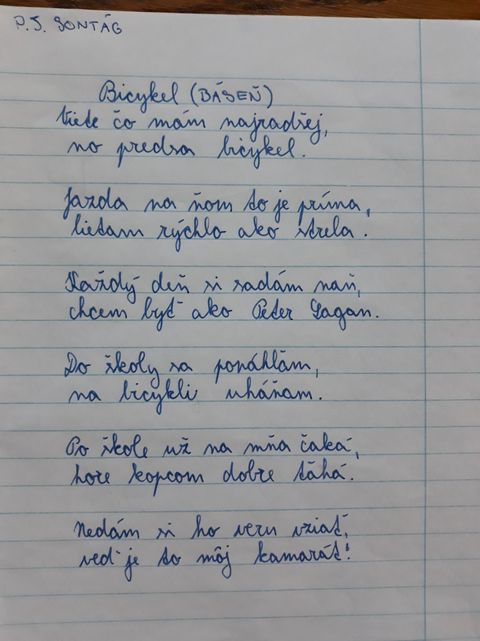 P.J. SONTÁG
Bicykel (BÁSEŇ)
Viete čo mám najradšej,
no predsa bicykel.
Jazda na ňom to je príma,
lietam rýchlo ako strela.
Každý deň si sadám naň,
chcem byť ako Peter Sagan.
Do školy sa ponáhľám,
na bicykli uháňam.
Po škole už na mňa čaká,
hore kopcom dobre ťáhá.
Nedám si ho veru vziať,
veď je to môj kamarát!